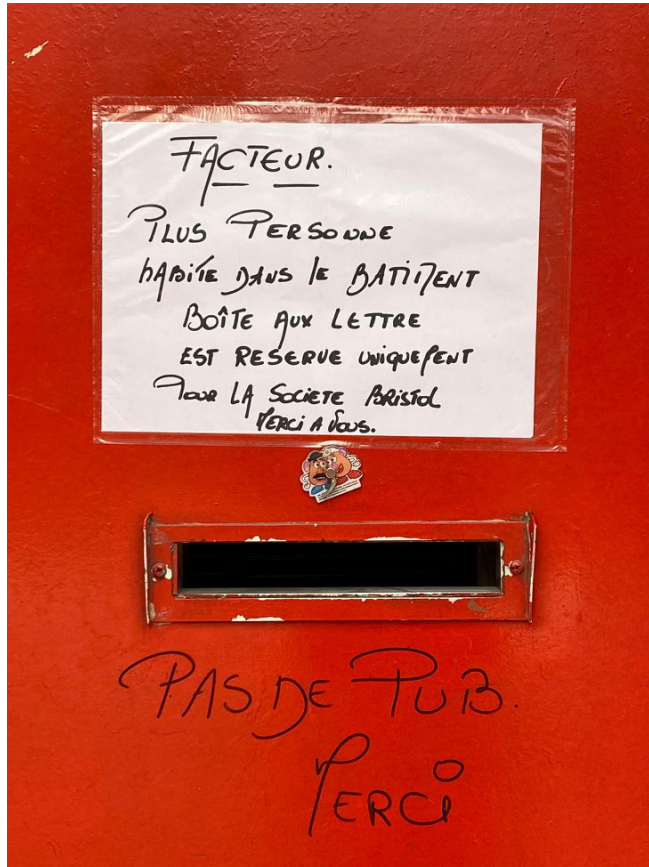 FACTEUR.
PLUS PERSONNE
HABITE DANS lE BATIMENT
BOÎTE AUX LETTRE
EST RESERVE UNIQUEMENT
POUR LA SOCIETE BRISTOL
MERCI A VOUS.
PAS DE PUB.
MERCi